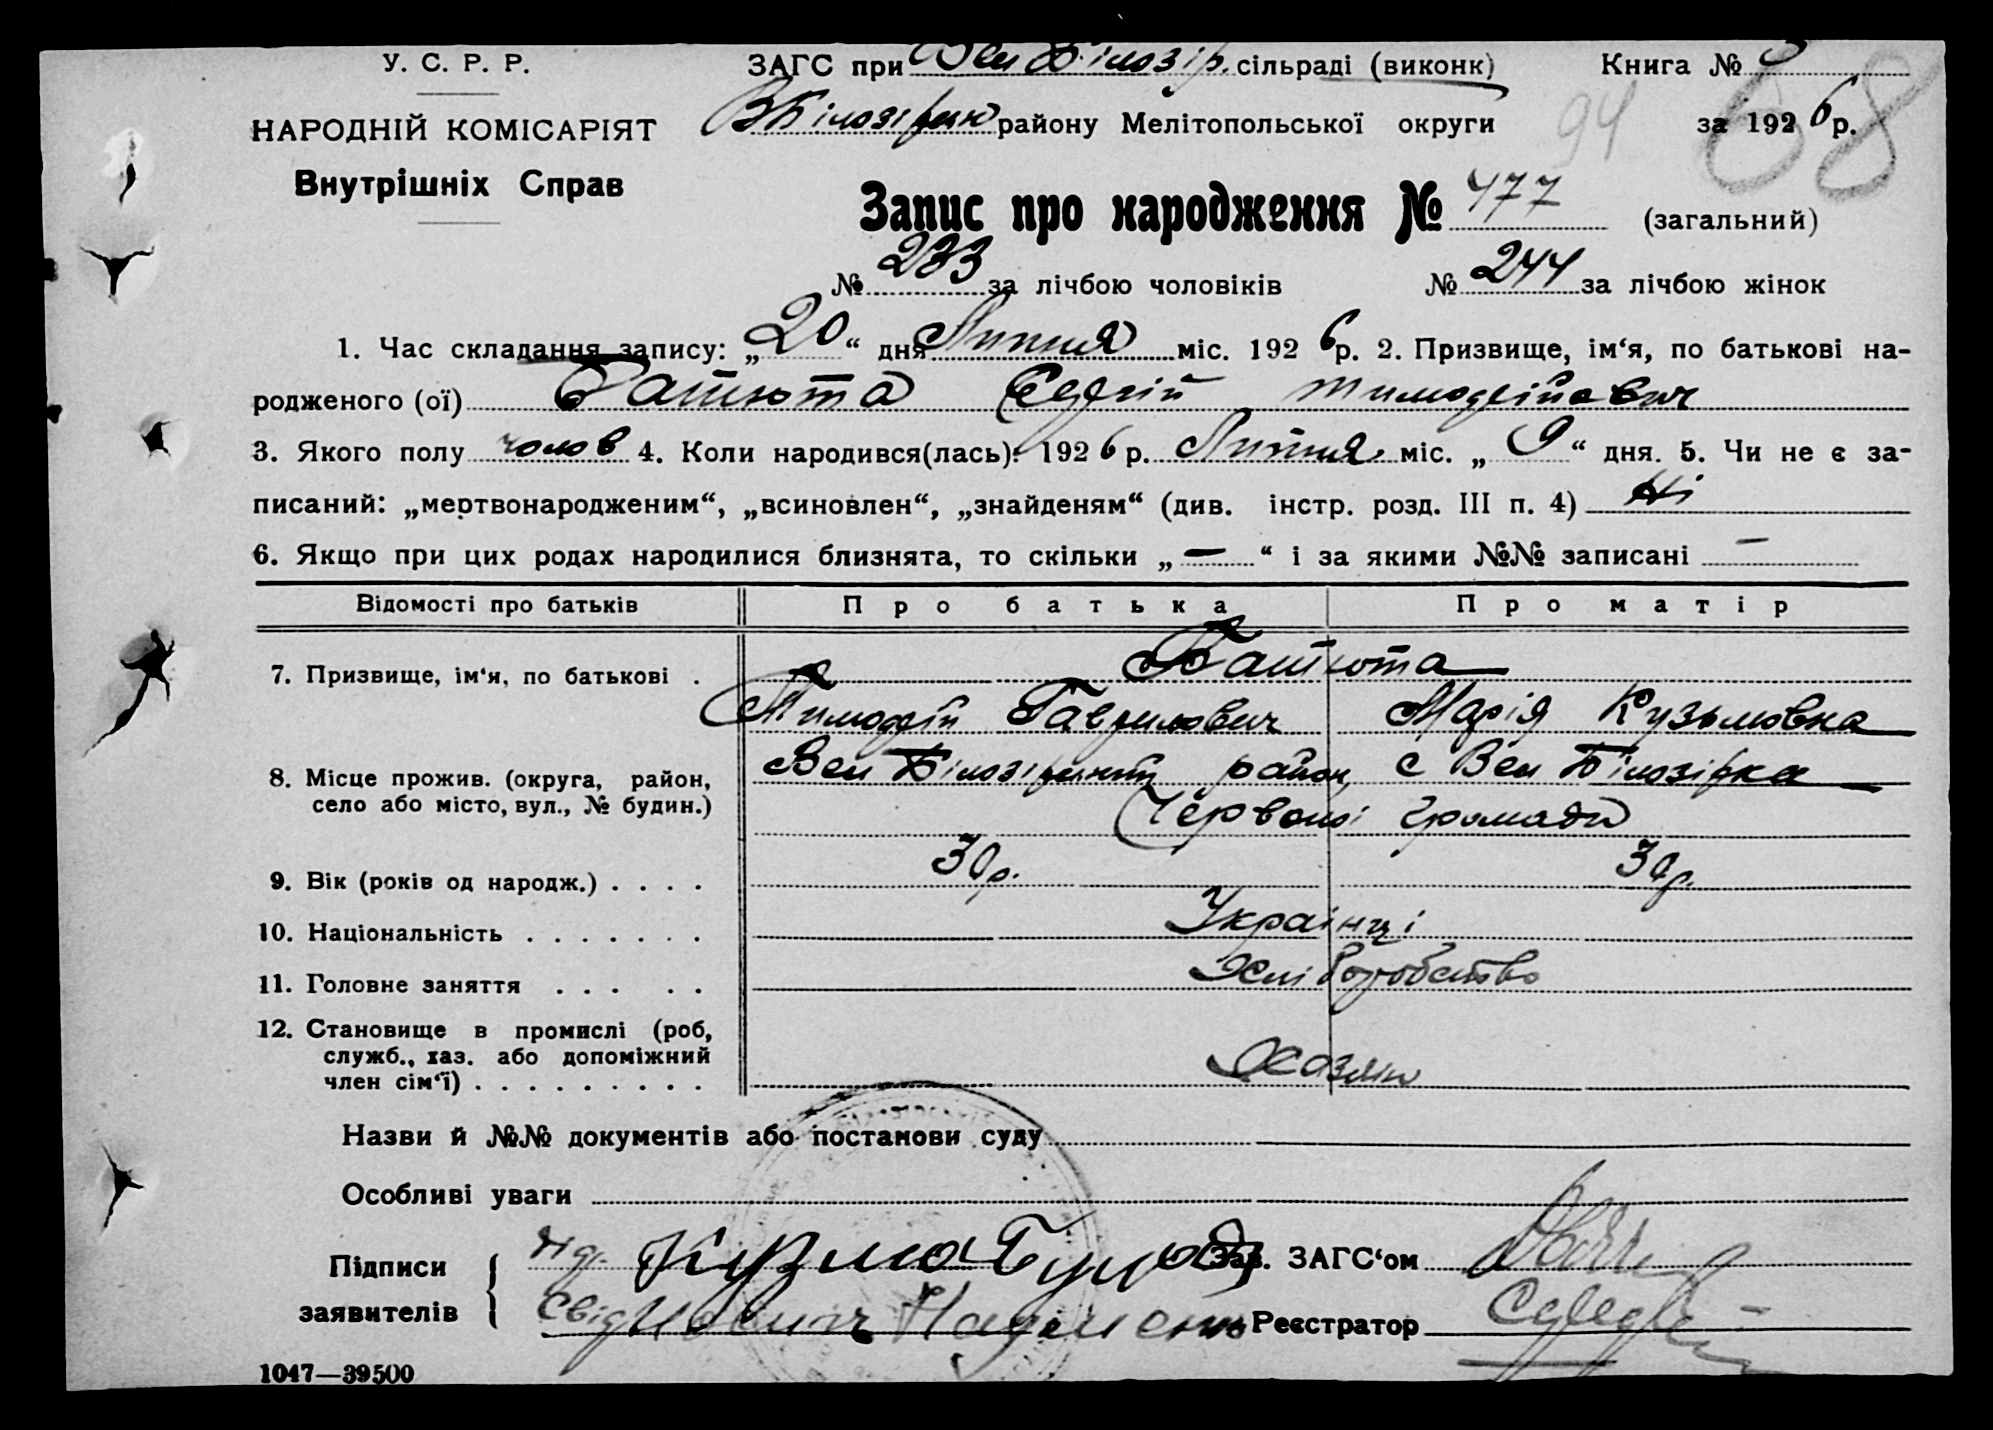 У. С. Р. Р.
ЗАГС при Вел Білозір. сільраді (виконк)
Книга №
НАРОДНІЙ КОМІСАРІЯТ
Внутрішніх Справ
ВБілозірськ району Мелітопольської округи
94
за 1926 р.
68
Запис про народження № 477 (загальний)
№ 233 за лічбою чоловіків
№ 244 за лічбою жінок
1. Час складання запису: „20“ дня Липня міс. 1926 р. 2. Призвище, ім‘я, по батькові на-
родженого (ої) Батюта Сергій Тимофійович
3. Якого полу чолов 4. Коли народився(лась): 1926 р. Липня міс. „9“ дня. 5. Чи не є за-
писаний: „мертвонародженим“, „всиновлен“, „знайденям“ (див. інстр. розд. III п. 4) Ні
6. Якщо при цих родах народилися близнята, то скільки „—“ і за якими №№ записані —
Відомості про батьків
Про батька
Про матір
7. Призвище, ім‘я, по батькові .
Батюта
Тимофій Гаврилович
Марія Кузьмовна
8. Місце прожив. (округа, район,
село або місто, вул., № будин.)
Вел Білозірський район, с Вел Білозірка
Червоної громади
9. Вік (років од народж.) . . . .
30р.
30р.
10. Національність . . . . . . .
Українці
11. Головне заняття . . . . .
Хліборобство
12. Становище в промислі (роб,
служб., хаз. або допоміжний
член сім‘ї) . . . . . . . . .
Хазяїн
Назви й №№ документів або постанови суду
Особливі уваги
Підписи
заявителів
Кузма
Зав. ЗАГС‘ом
Свід
Реєстратор
1047—39500